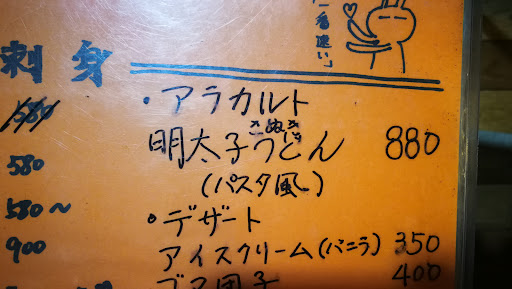 一番速い」
刺身
580
580
580〜
900
・アラカルト
さぬき
明太子うどん 880
(パスタ風)
・デザート
アイスクリーム(バニラ) 350
ゴマ団子 400